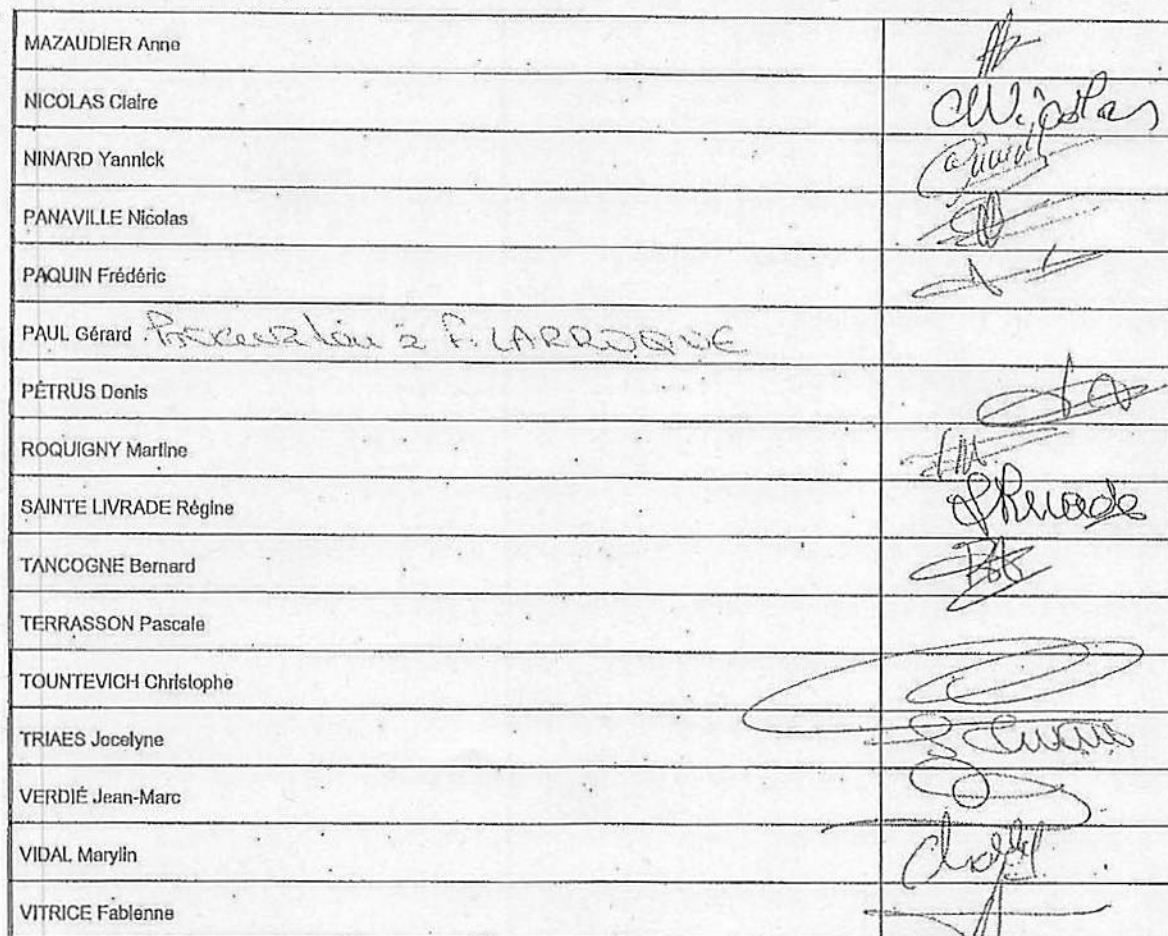 MAZAUDIER Anne
NICOLAS Claire
CNicolas
NINARD Yannick
PANAVILLE Nicolas
PAQUIN Frédéric
PAUL Gérard Procuration à F. LARROQUE
PÉTRUS Denis
ROQUIGNY Martine
SAINTE LIVRADE Régine
TANCOGNE Bernard
TERRASSON Pascale
TOUNTEVICH Christophe
TRIAES Jocelyne
VERDIÉ Jean-Marc
VIDAL Marylin
VITRICE Fabienne